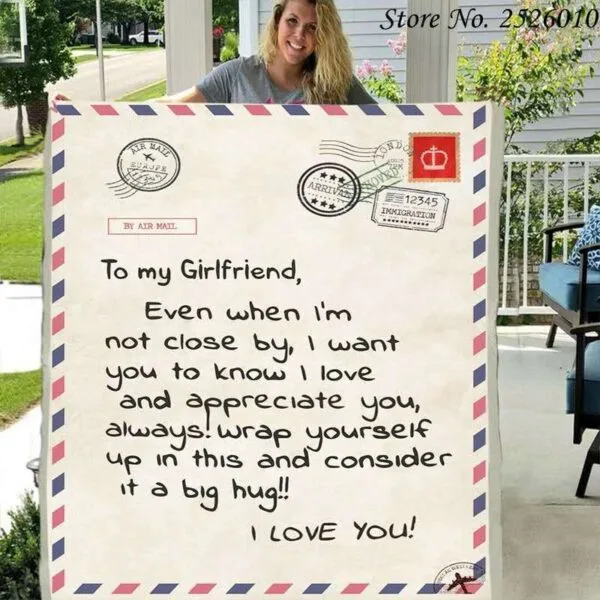 Store No. 2526010
AIR MAIL
EUROPE
LONDON
ARRIVAL
12345
IMMIGRATION
BY AIR MAIL
To my Girlfriend,
Even when i'm
not close by, I want
you to know I love
and appreciate you,
always! wrap yourself
up in this and consider
it a big hug!!
I LOVE YOU!